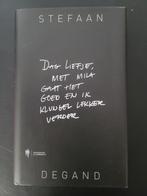 STEFAAN
DAG LIEFJE,
MET MILA
GAAT HET
GOED EN IK
KLUNGEL LEKKER
VERDER
DEGAND